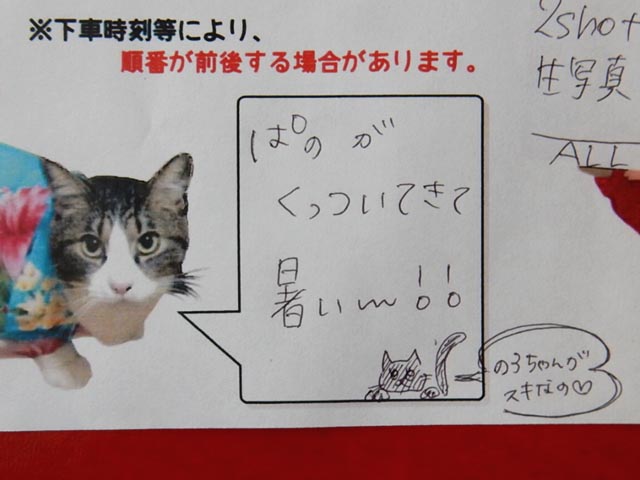 ※下車時刻等により、
順番が前後する場合があります。
2shot
生写真
ALL
ぱのが
くっついてきて
暑い〜!!
のろちゃんが
スキなの♡